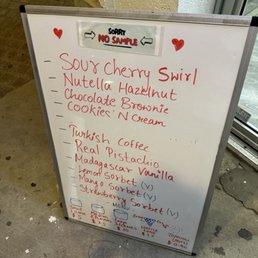 SORRY
NO SAMPLE
Sour Cherry Swirl
Nutella Hazelnut
Chocolate Brownie
Cookies 'N Cream
Turkish Coffee
Real Pistachio
Madagascar Vanilla
Lemon Sorbet (V)
Mango Sorbet (V)
Strawberry Sorbet (V)